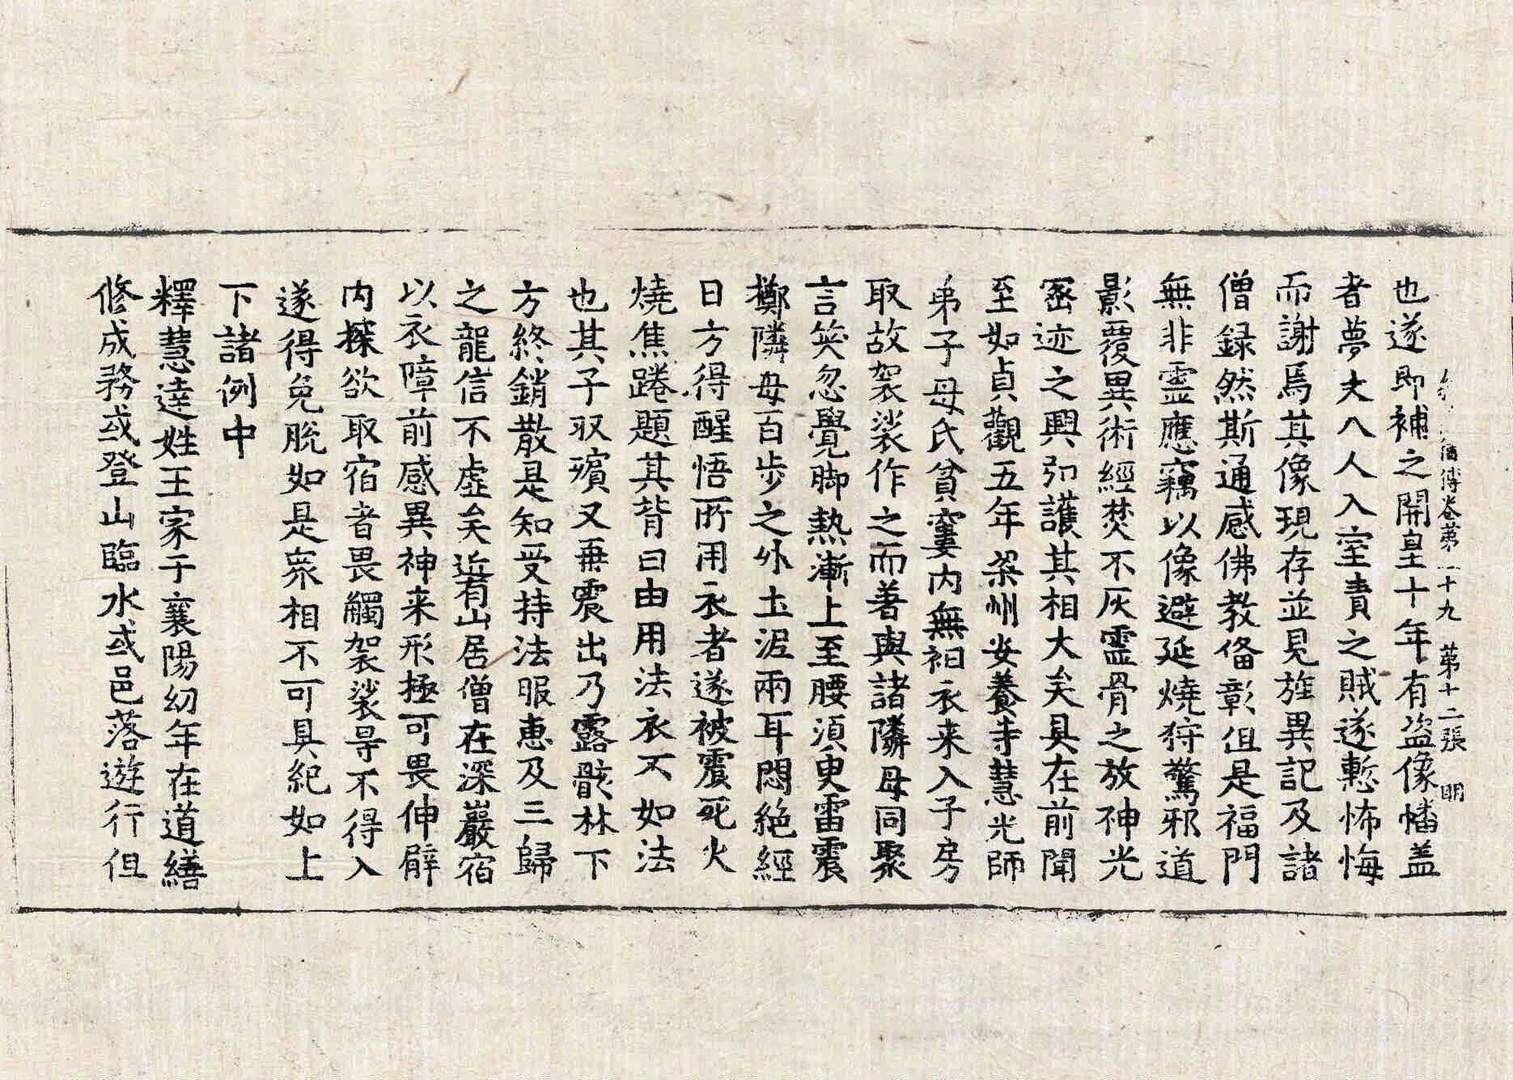 僧傳卷第二十九 第十二張 明
也遂即補之開皇十年有盜像幡盖
者夢丈八人入室責之賊遂慙怖悔
而謝焉其像現存並見旌異記及諸
僧録然斯通感佛教俻彰但是福門
無非靈應竊以像避延燒狩驚邪道
影覆異術經焚不灰靈骨之放神光
密迹之興弘護其相大矣具在前聞
至如貞觀五年梁州安養寺慧光師
弟子母氏貧窶內無衵衣来入子房
取故袈裟作之而著與諸隣母同聚
言笑忽覺脚熱漸上至腰須臾雷震
擲隣母百步之外土泥兩耳悶絶經
日方得醒悟所用衣者遂被震死火
燒焦踡題其背曰由用法衣不如法
也其子収殯又再震出乃露骸林下
方終銷散是知受持法服惠及三歸
之龍信不虛矣近有山居僧在深巖宿
以衣障前感異神来形極可畏伸臂
內探欲取宿者畏觸袈裟㝵不得入
遂得免脫如是衆相不可具紀如上
下諸例中
釋慧達姓王家于襄陽幼年在道繕
修成務或登山臨水或邑落遊行但